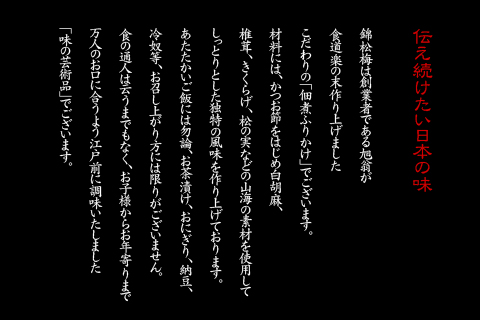 伝え続けたい日本の味
錦松梅は創業者である旭翁が
食道楽の末作り上げました
こだわりの「佃煮ふりかけ」でございます。
材料には、かつお節をはじめ白胡麻、
椎茸、きくらげ、松の実などの山海の素材を使用して
しっとりとした独特の風味を作り上げております。
あたたかいご飯には勿論、お茶漬け、おにぎり、納豆、
冷奴等、お召し上がり方には限りがございません。
食の通人は云うまでもなく、お子様からお年寄りまで
万人のお口に合うよう江戸前に調味いたしました
「味の芸術品」でございます。